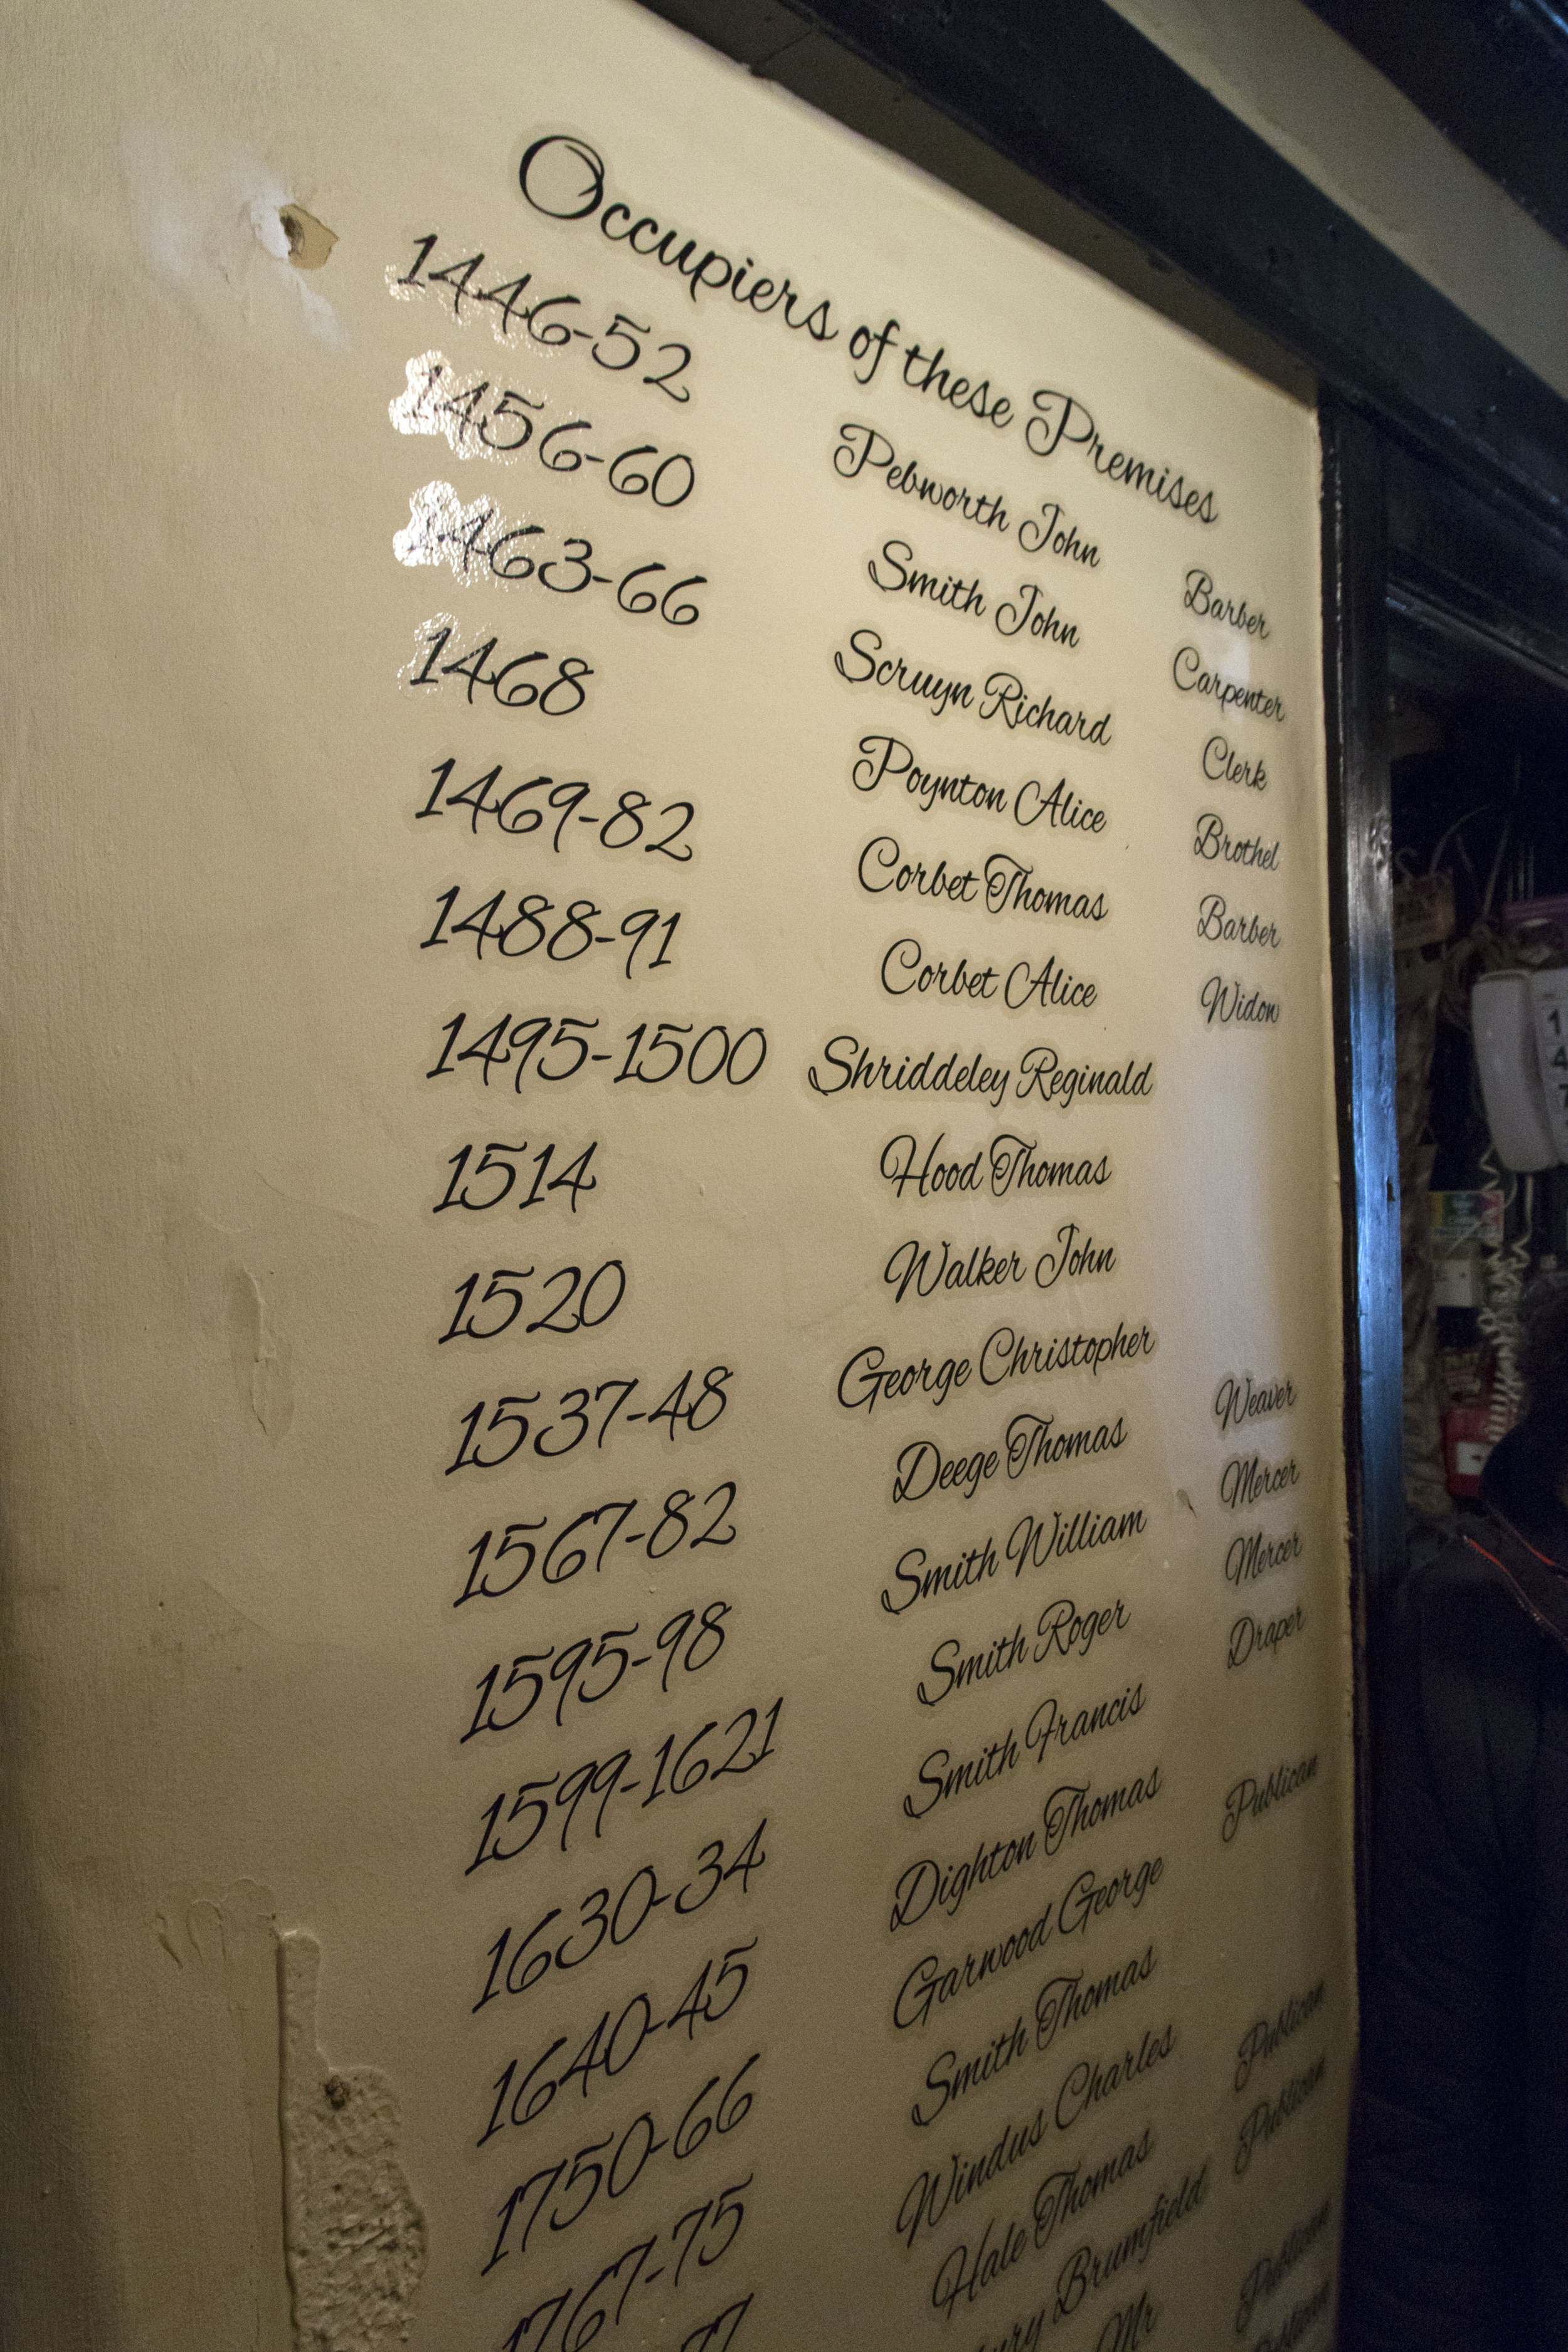 Occupiers of these Premises
1446-52 Pebworth John Barber
1456-60 Smith John Carpenter
1463-66 Scruyn Richard Clerk
1468 Poynton Alice Brothel
1469-82 Corbet Thomas Barber
1488-91 Corbet Alice Widow
1495-1500 Shriddeley Reginald
1514 Hood Thomas
1520 Walker John
1537-48 George Christopher
1567-82 Deege Thomas Weaver
1595-98 Smith William Mercer
1599-1621 Smith Roger Mercer
1630-34 Smith Francis Draper
1640-45 Dighton Thomas
1750-66 Garwood George Publican
1767-75 Smith Thomas
Windus Charles
Hale Thomas Publican
Brumfield Publican
Mr
Publican